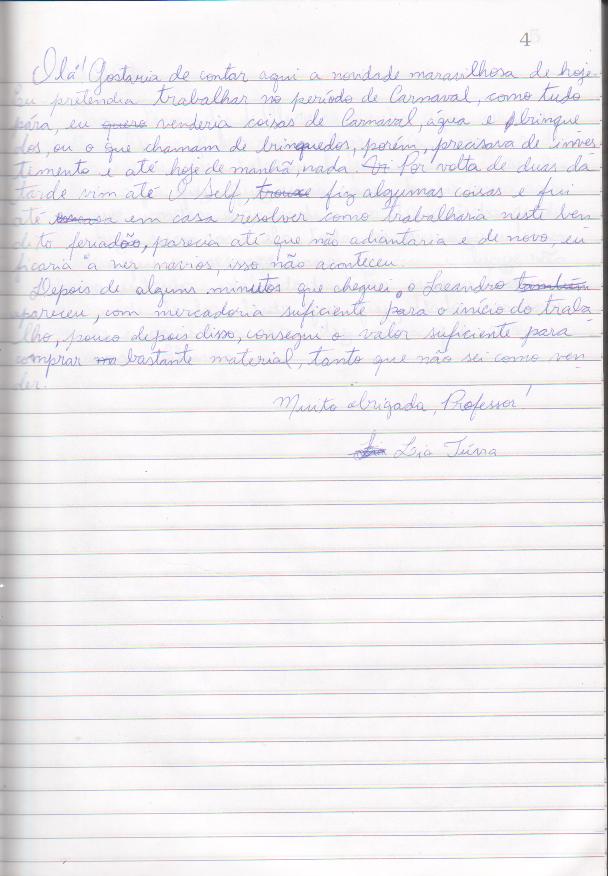 4
Olá! Gostaria de contar aqui a novidade maravilhosa de hoje.
Eu pretendia trabalhar no período de Carnaval, como tudo
pára, eu quero venderia coisas de Carnaval, água e brinque
dos, ou o que chamam de brinquedos, porém, precisava de inves
timento e até hoje de manhã, nada. Por volta de duas da
tarde vim até O Self, trouxe fiz algumas coisas e fui
até em casa resolver como trabalharia neste ben
dito feriadão, parecia até que não adiantaria e de novo, eu
ficaria "a ver navios, isso não aconteceu.
Depois de alguns minutos que cheguei, o Leandro também
apareceu, com mercadoria suficiente para o início do traba
lho, pouco depois disso, consegui o valor suficiente para
comprar bastante material, tanto que não sei como ven
der.
Muito obrigada, Professor!
Lia Túvra